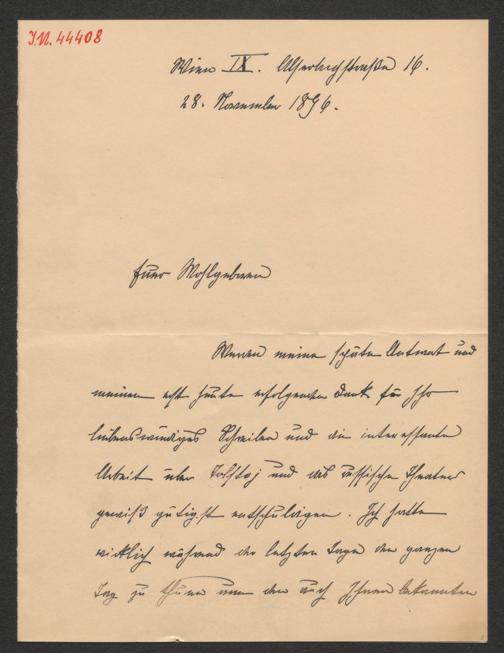 J.N. 44408
Wien IX. Alserbachstraße 16.
28. November 1896.
Euer Wohlgeboren
meine späte Antwort und
meinen erst heute erfolgenden Dank für Ihr
liebenswürdiges Schreiben und die interessante
Arbeit über Tolstoj und das russische Theater
gewiß gütigst entschuldigen. Ich hatte
wirklich während der letzten Tage den ganzen
Tag zu thun um den auch Ihnen bekannten